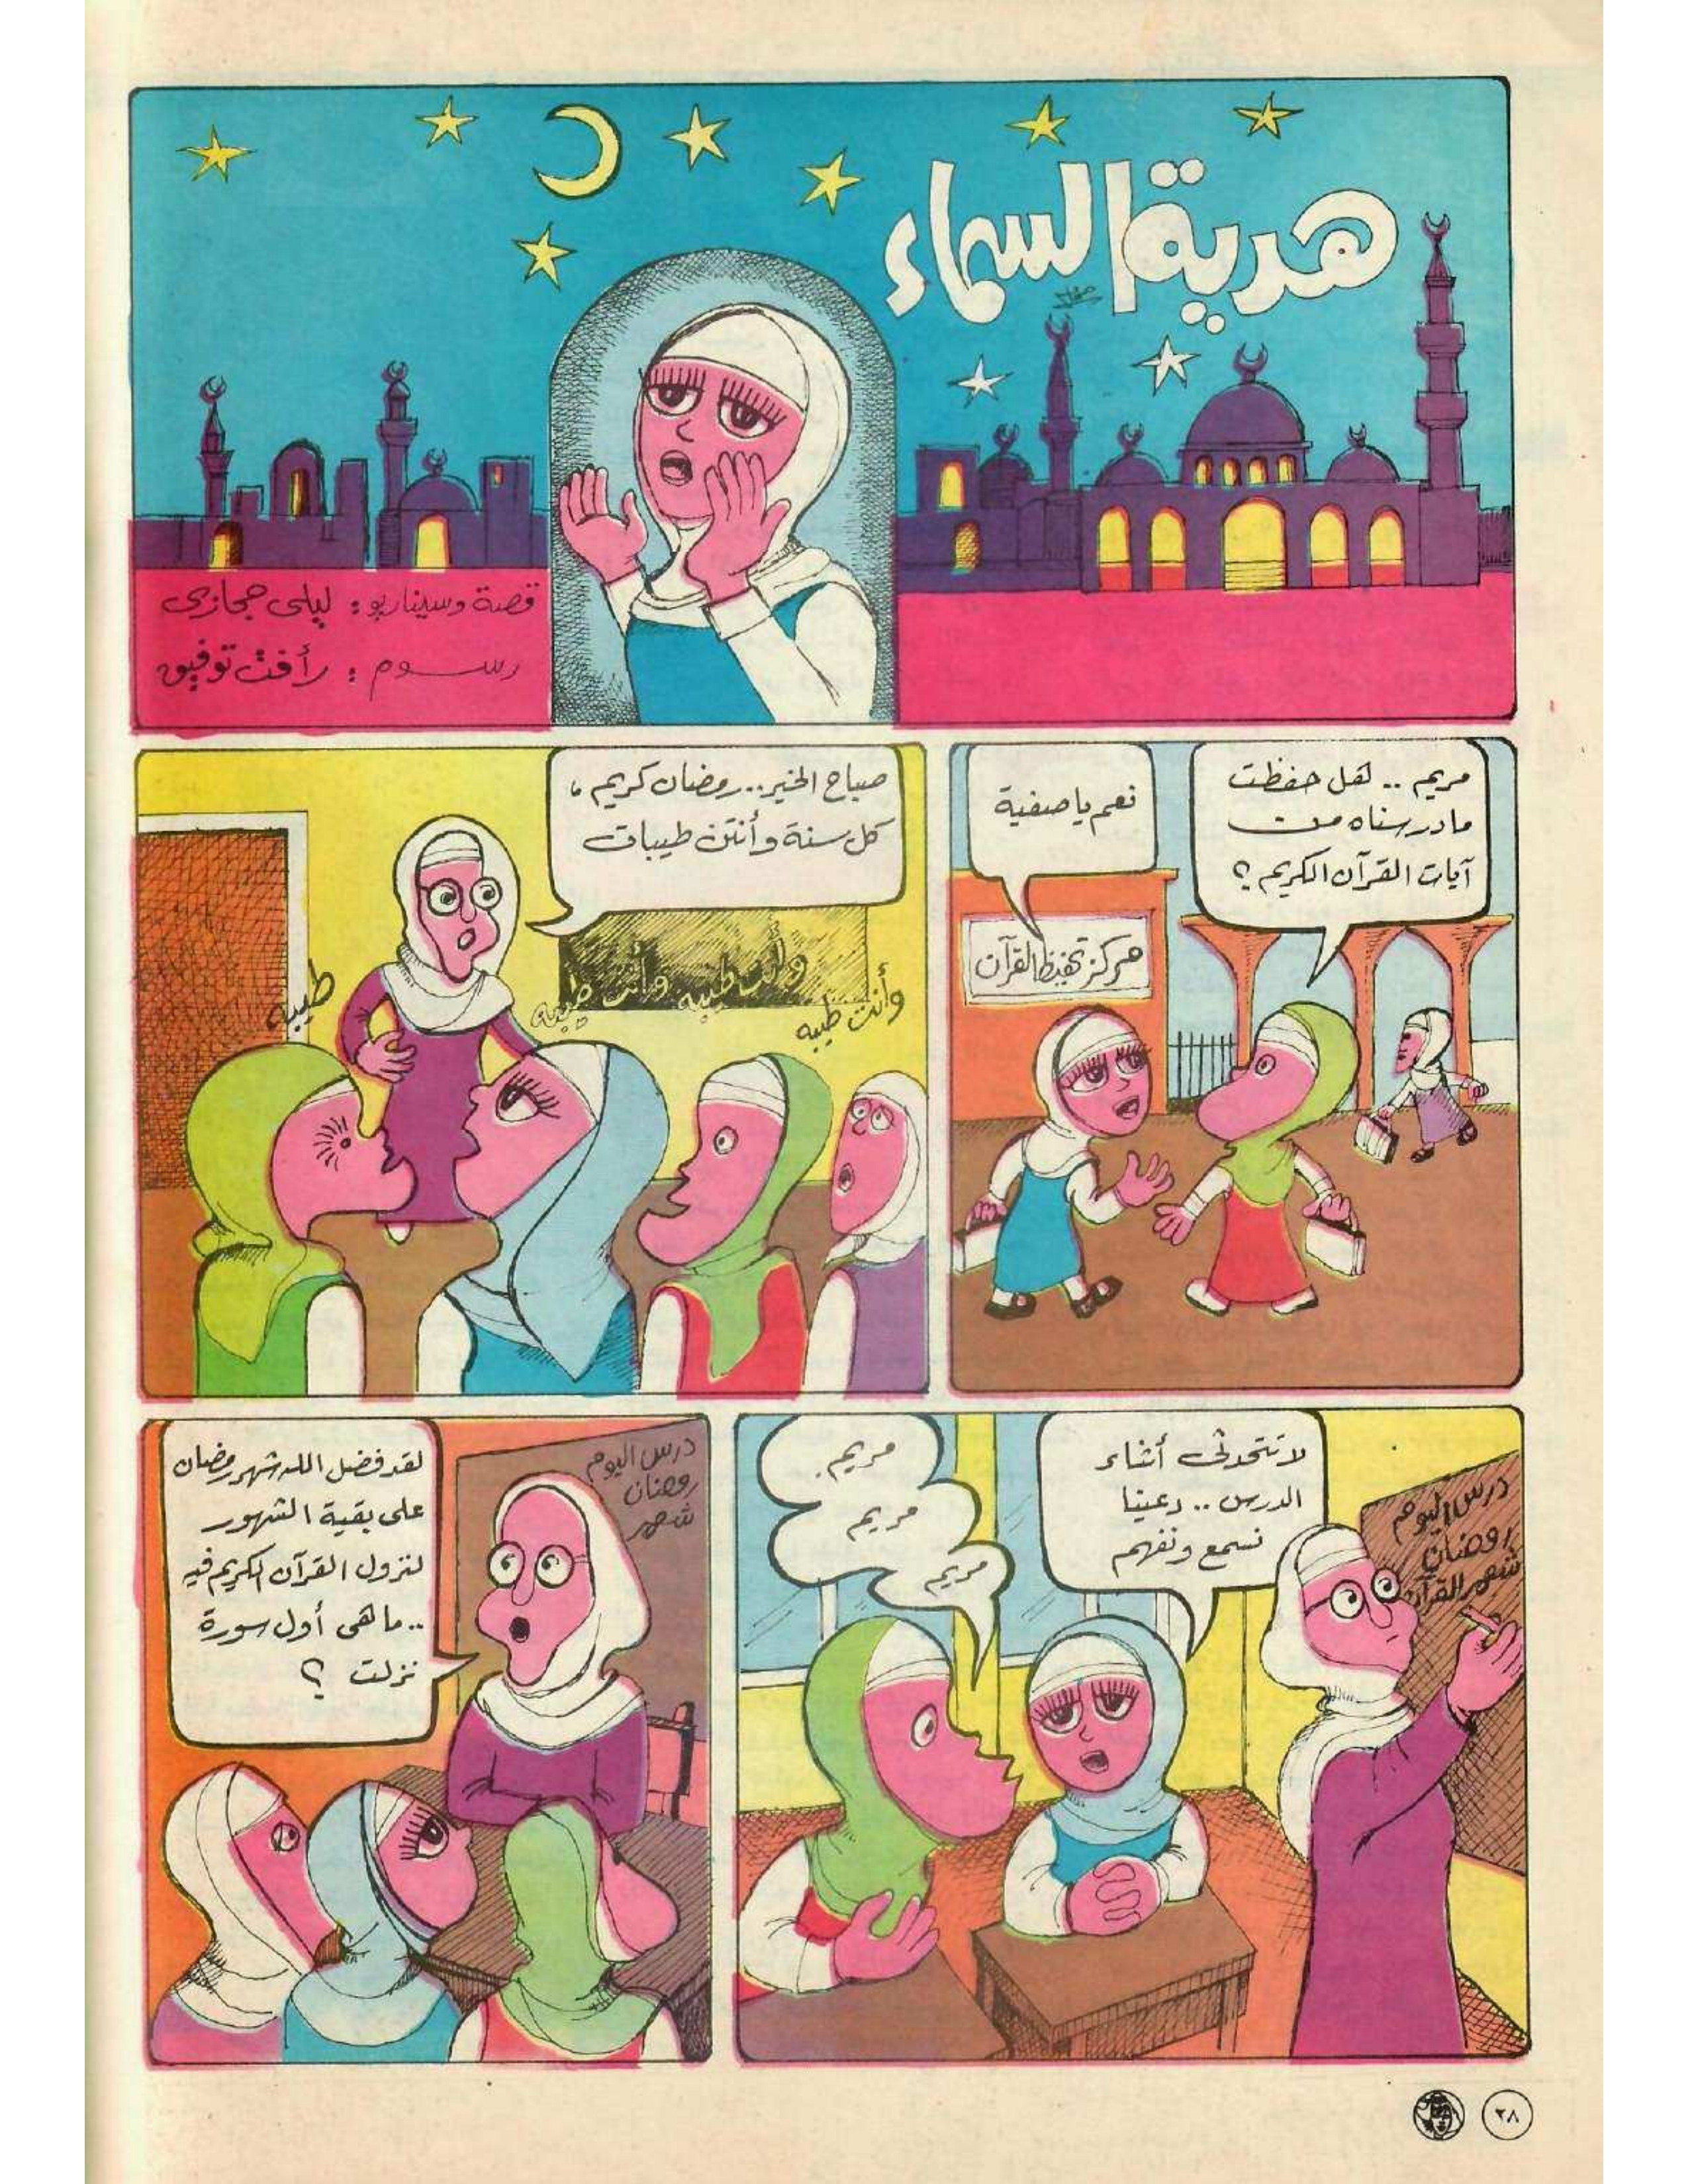 هدية السماء
قصة وسيناريو : ليلى حجازى
رسوم : رأفت توفيق
مريم .. هل حفظت
ما درسناه من
آيات القرآن الكريم ؟
نعم يا صفية
مركز تحفيظ القرآن
صباح الخير .. رمضان كريم ،
كل سنة وأنتن طيبات
وأنت طيبه
وأنت طيبه
وأنت طيبه
طيبه
لا تتحدثى أثناء
الدرس .. دعينا
نسمع ونفهم
مريم .
مريم
مريم
درس اليوم
رمضان
شهر القرآن
لقد فضل الله شهر رمضان
على بقية الشهور
لنزول القرآن الكريم فيه
.. ما هى أول سورة
نزلت ؟
درس اليوم
رمضان
شهر
٢٨